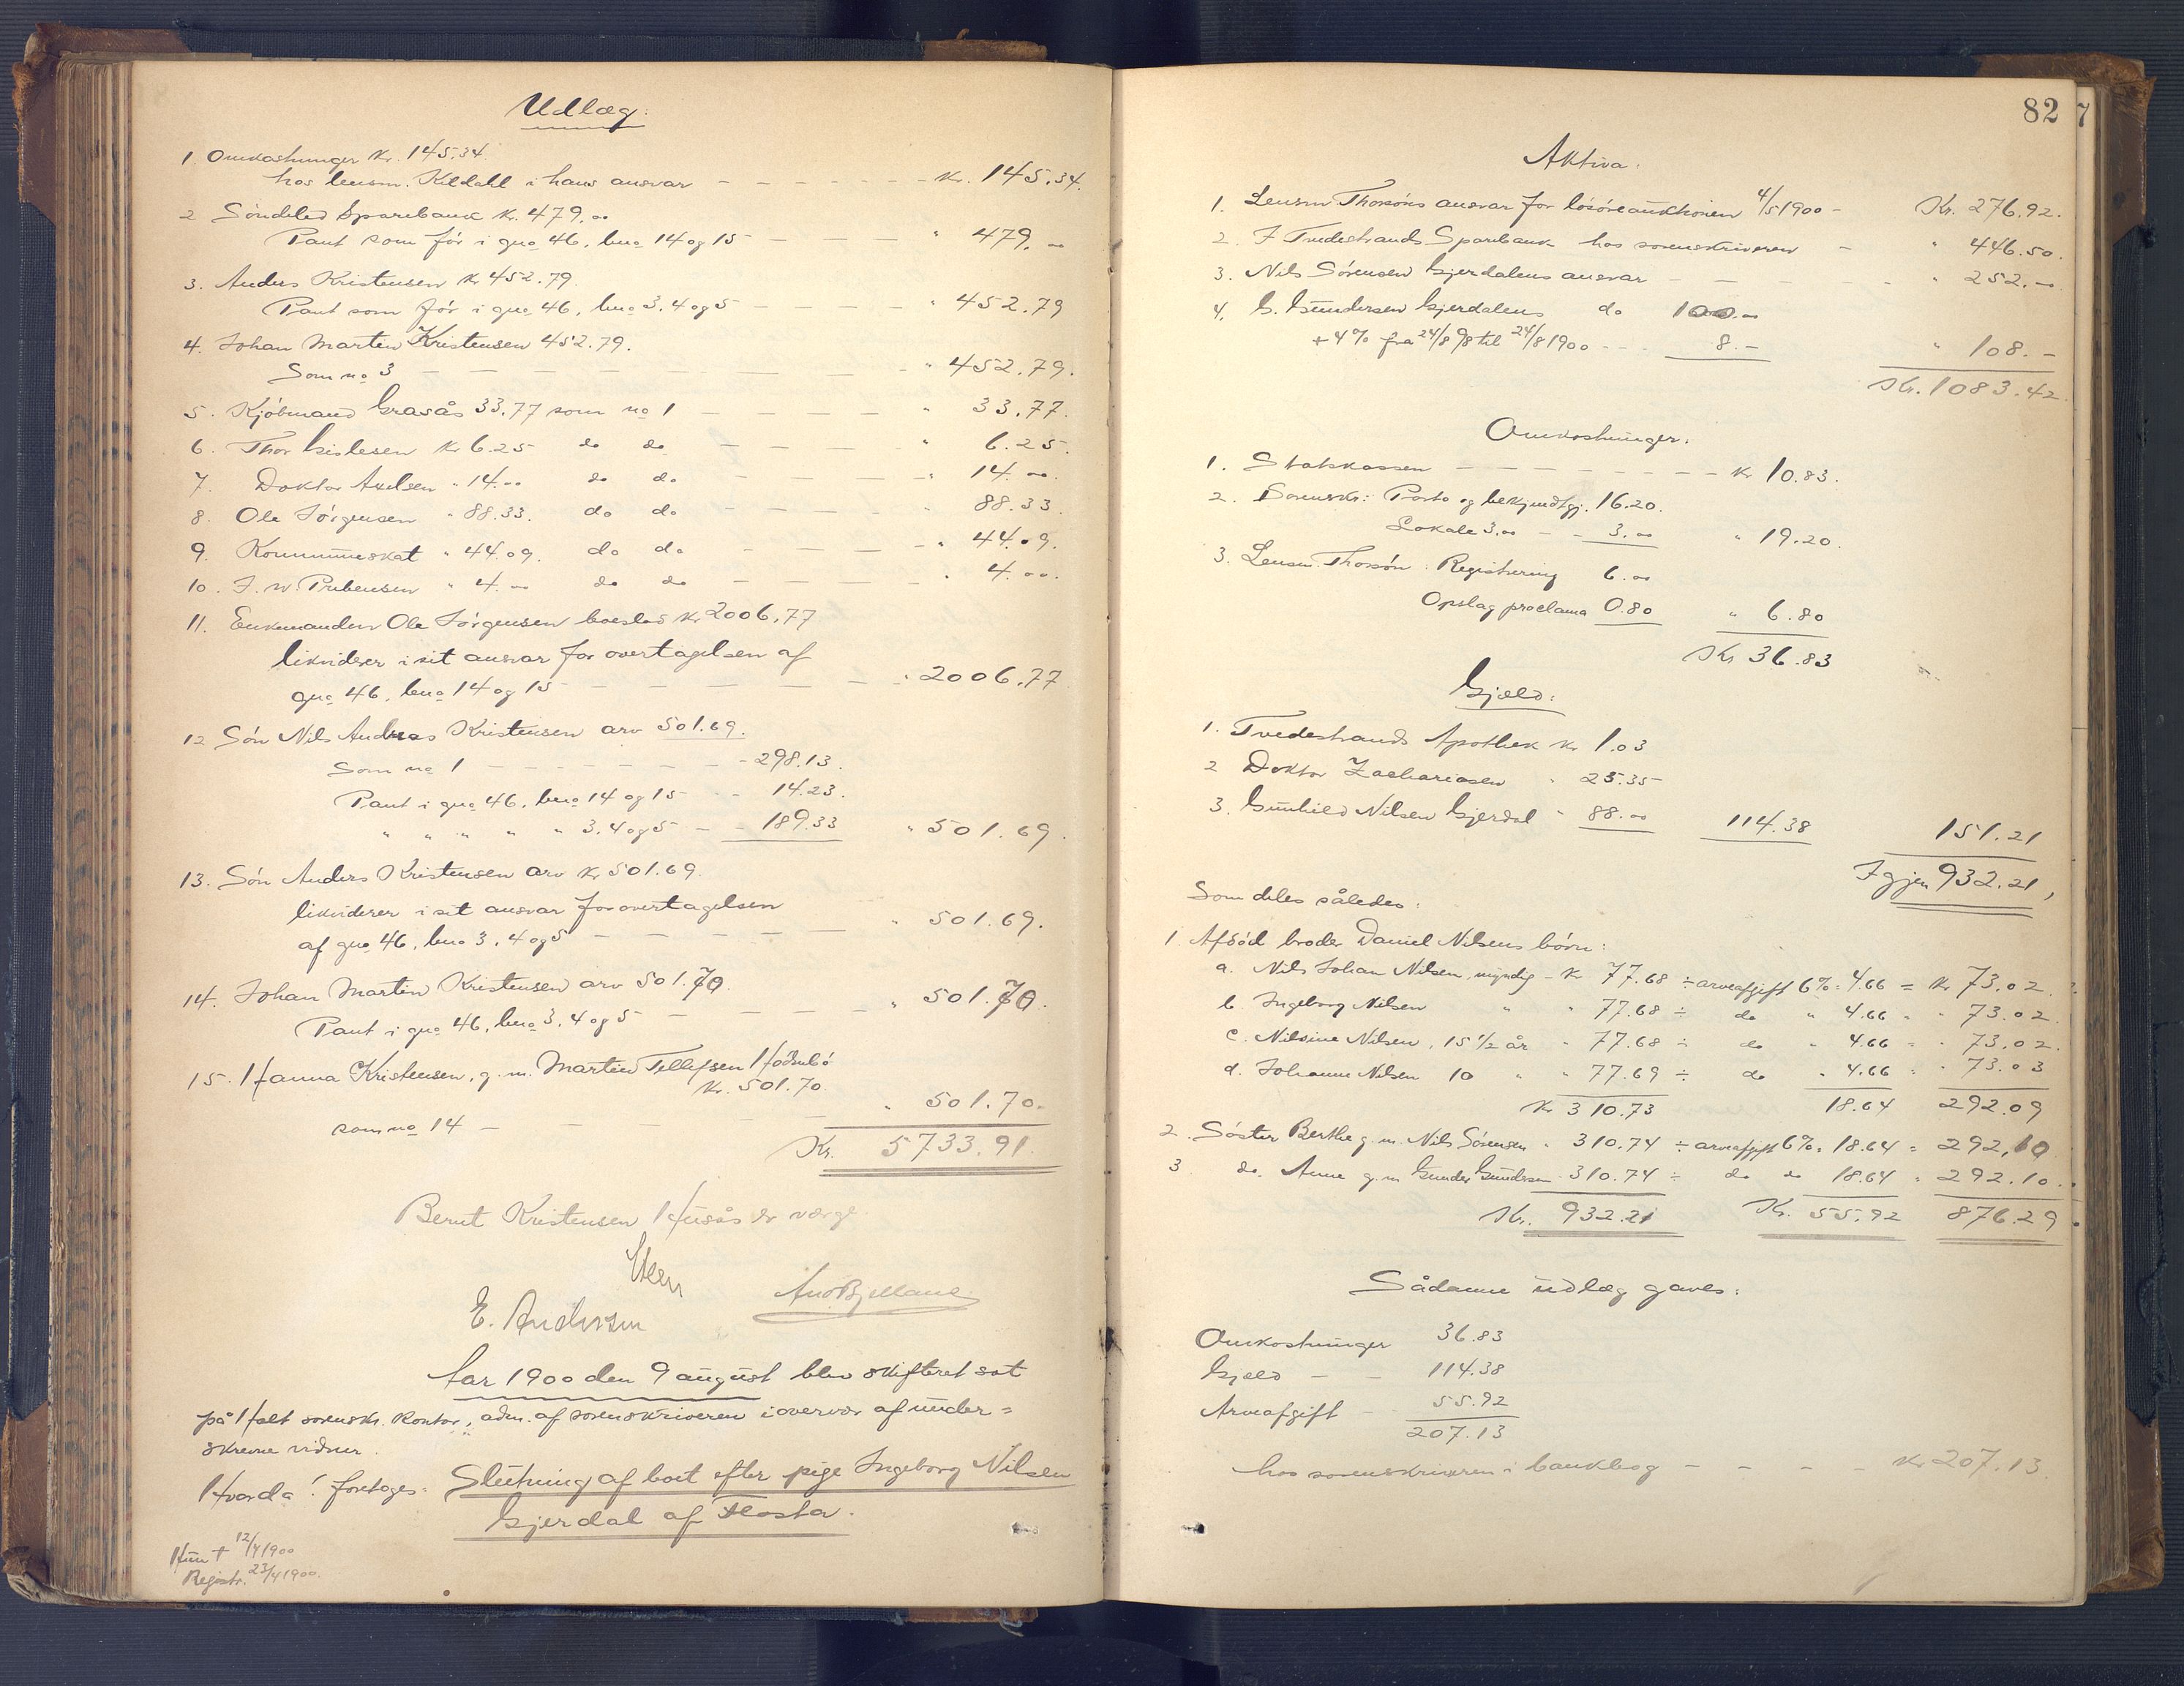 Udlæg.
1 Omkostninger kr. 145.34.
hos lensm. Kildahl i hans ansvar – – – – – – – kr. 145.34.
2 Söndeled Sparebank kr. 479.00
Pant som för i gno 46, bno 14 og 15 – – – – " 479.00
3. Anders Kristensen kr 452.79.
Pant som för i gno 46, bno 3, 4 og 5 – – – – " 452.79
4. Johan Martin Kristensen 452.79.
Som no 3 – – – – – – – – – " 452.79.
5. Kjöbmand Grasås 33.77 som no 1 – – – – " 33.77.
6. Thor Gislesen kr 6.25 do do – – – – " 6.25.
7. Doktor Axelsen " 14.00 do do – – – – " 14.00.
8. Ole Jörgensen " 88.33. do do – – – – 88.33.
9. Kommuneskat " 44.09. do do – – – – " 44.09.
10. J. W. Prebensen " 4.00 do do – – – " 4.00.
11. Enkemanden Ole Jörgensen boeslod kr 2006.77
likviderer i sit ansvar for overtagelsen af
gno 46, bno 14 og 15 – – – – – – " 2006.77
12 Sön Nils Andreas Kristensen arv 501.69.
Som no 1 – – – – – – – 298.13.
Pant i gno 46, bno 14 og 15 – – 14.23.
" " " " " 3. 4 og 5 – – 189.33 " 501.69.
13. Sön Anders Kristensen arv kr 501.69.
likviderer i sit ansvar for overtagelsen
af gno 46, bno 3, 4 og 5 – – – – – " 501.69.
14. Johan Martin Kristensen arv 501.70.
Pant i gno 46, bno 3, 4 og 5 – – – – " 501.70.
15. Hanna Kristensen, g. m. Martin Tellefsen Hödnebö
kr. 501.70.
som no 14 – – – – " 501.70.
Kr. 5733.91.
Bernt Kristensen Husås er værge
Steen
E. Andersen
Aar 1900 den 9 august blev skifteret sat
på Holt sorenskr. kontor, adm. af sorenskriveren i overvær af under=
skrevne vidner.
Hvorda: foretoges: Slutning af boet efter pige Ingeborg Nilsen
Gjerdal af Flosta.
Hun † 12/4 1900
Registr. 23/4 1900.
82
7
Aktiva:
1. Lensm Thorsöns ansvar for lösöreauktionen 4/5 1900 – Kr. 276.92.
2. I Tvedestrands Sparebank hos sorenskriveren – " 446.50.
3. Nils Sörensen Gjerdalens ansvar – – – – – " 252.00
4. G. Gundersen Gjerdalens do 100.00
+ 4% fra 24/8 98 til 24/8 1900 – – 8.– " 108.–
Kr. 1083.42.
Omkostninger:
1. Statskassen – – – – – – – – kr 10.83.
2. Sorenskr: Porto og bekjendtgj. 16.20.
Lokale 3.00 – – 3.00 " 19.20.
3. Lensm. Thorsön: Registrering 6.00
Opslag proclama 0.80 " 6.80
Kr 36.83
Gjæld:
1. Tvedestrands Apothek kr 1.03
2 Doktor Zachariasen " 25.35
3. Gunhild Nilsen Gjerdal " 88.00 114.38 151.21
Igjen 932.21,
Som deles således:
1. Afdöd broder Daniel Nilsens börn:
a. Nils Johan Nilsen, myndig – kr 77.68 ÷ arveafgift 6% = 4.66 = kr 73.02.
b. Ingeborg Nilsen " " 77.68 ÷ do " 4.66 " " 73.02.
c. Nilsine Nilsen, 15 1/2 år " 77.68 ÷ do " 4.66 = " 73.02.
d. Johanne Nilsen 10 " " 77.69 ÷ do " 4.66 " " 73.03
kr 310.73 18.64 292.09
2. Söster Berthe g. m. Nils Sörensen " 310.74 ÷ arveafgift 6% = 18.64 = 292.10
3 do. Anne g. m Gunder Gundersen 310.74 ÷ do do 18.64 " 292.10.
Kr. 932.21 Kr. 55.92 876.29
Sådanne udlæg gaves:
Omkostninger 36.83
Gjæld – – 114.38
Arveafgift – 55.92
207.13
hos sorenskriveren i bankbog – – – – kr 207.13.